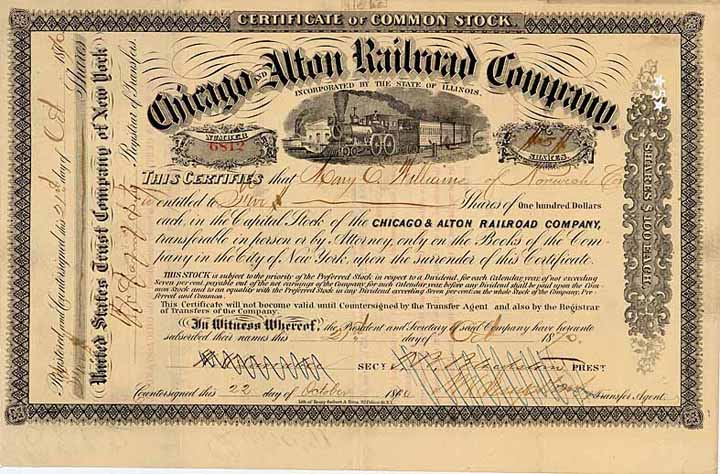 CERTIFICATE OF COMMON STOCK.
Chicago AND Alton Railroad Company.
INCORPORATED BY THE STATE OF ILLINOIS.
NUMBER
6812
SHARES
THIS CERTIFIES that Mary C. Williams of Norwich
is entitled to Shares of One hundred Dollars
each, in the Capital Stock of the CHICAGO & ALTON RAILROAD COMPANY,
transferable in person or by Attorney, only on the Books of the Com-
pany in the City of New York, upon the surrender of this Certificate.
THIS STOCK is subject to the priority of the Preferred Stock in respect to a Dividend, for each Calendar year, of not exceeding
Seven per cent. payable out of the net earnings of the Company for each Calendar year, before any Dividend shall be paid upon the Com-
mon Stock and to an equality with the Preferred Stock in any Dividend exceeding Seven per cent. on the whole Stock of the Company, Pre-
ferred and Common.
This Certificate will not become valid until Countersigned by the Transfer Agent and also by the Registrar
of Transfers of the Company.
In Witness Whereof, the President and Secretary of said Company have hereunto
subscribed their names this day of Oct 1870.
SECY. PREST
Countersigned this 22 day of October Transfer Agent.
Registered and Countersigned this 21 day of Oct 1870
Shares
United States Trust Company of New York
Registrar of Transfers.
SHARES $100 EACH.